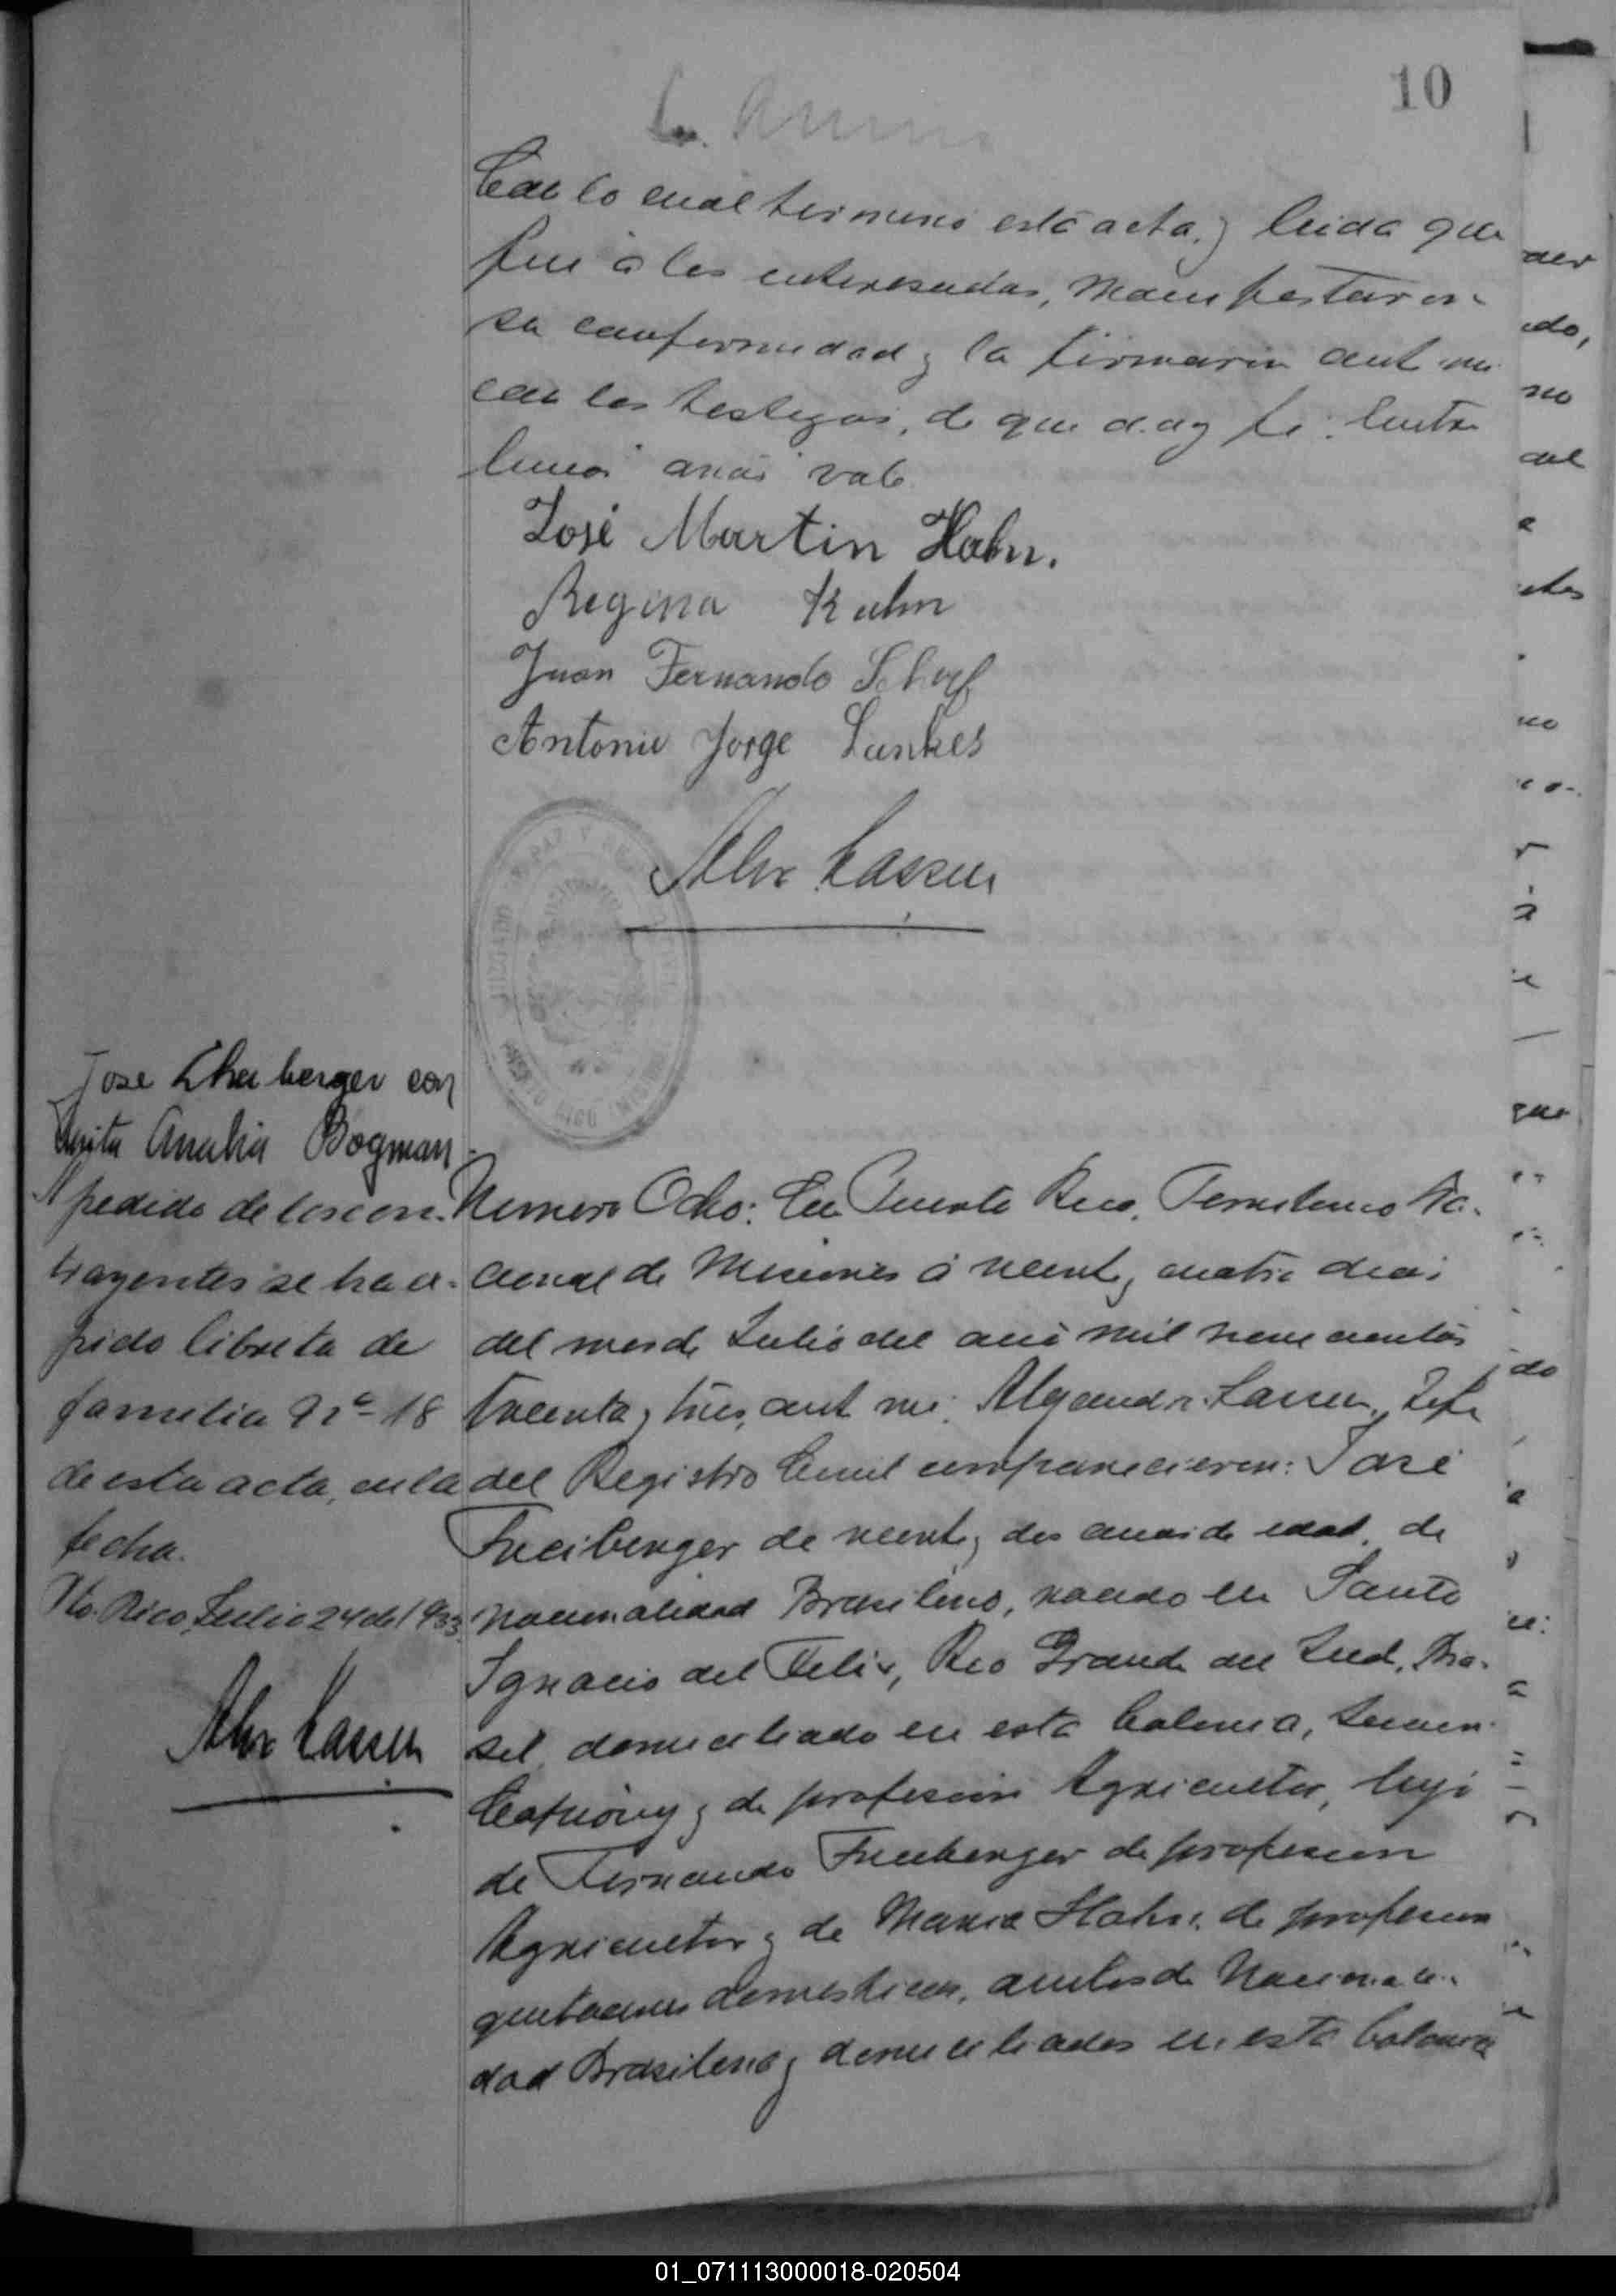 10
Con lo cual terminó esta acta, y leida que
fue á los interesados, manifestaron
su conformidad y la firmaron ante mi
con los testigos, de que doy fé: Entre
lineas vale
José Martin Hahn.
Regina Kuhn
Juan Fernando Scherf
Antonio Jorge Lunkes
Alex Lassen
Jose Freiberger con
Anita Amalia Bogman.
A pedido de los con-
trayentes se ha ex-
pido libreta de
familia Nº 18
de esta acta, en la
fecha.
Pto. Rico, Julio 24 de 1933
Alex Lassen
Numero Ocho: En Puerto Rico, Territorio Na-
cional de Misiones á veinte y cuatro dias
del mes de Julio del año mil nuevecientos
treinta y tres, ante mi: Alejandro Lassen, Jefe
del Registro Civil comparecieron: José
Freiberger de veinte y dos anos de edad, de
nacionalidad Brasilero, nacido en Santo
Ignacio del Feliz, Rio Grande del Sud, Bra-
sil, domiciliado en esta Colonia,
y de profesion Agricultor, hijo
de Fernando Freiberger de profesion
Agricultor y de Maria Hahn, de profesion
domesticos, ambos de Nacionali-
dad Brasilera y domiciliados en esta Colonia
01_071113000018-020504